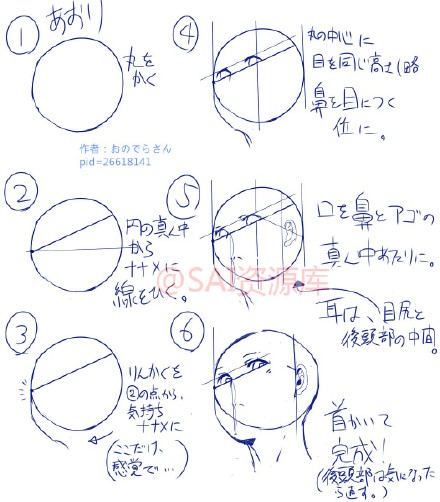 あおり
①
丸を
かく
作者：おのでらさん
pid=26618141
②
円の真ん中
から
ナナメに
線をひく。
③
りんかくを
②の点から、
気持ち
ナナメに
ここだけ、
感覚で…
④
丸の中心に
目を同じ高さ(略
鼻を目につく
位に。
⑤
口を鼻とアゴの
真ん中あたりに。
耳は、目尻と
後頭部の中間。
⑥
首かいて
完成!
(後頭部は気になった
ら直す。)
@SAI资源库